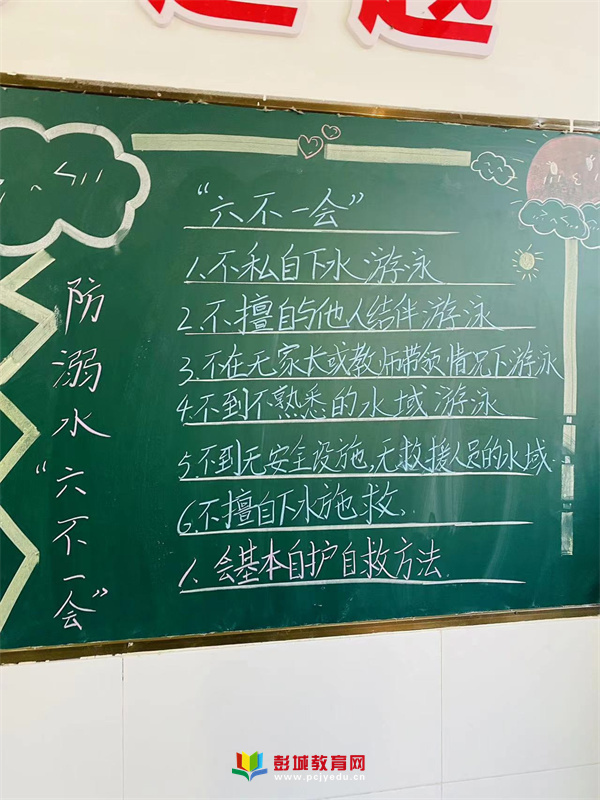 防溺水“六不一会”
“六不一会”
1.不私自下水游泳
2.不擅自与他人结伴游泳
3.不在无家长或教师带领情况下游泳
4.不到不熟悉的水域游泳
5.不到无安全设施,无救援人员的水域.
6.不擅自下水施救.
1.会基本自护自救方法.
彭城教育网
www.pcjyedu.cn